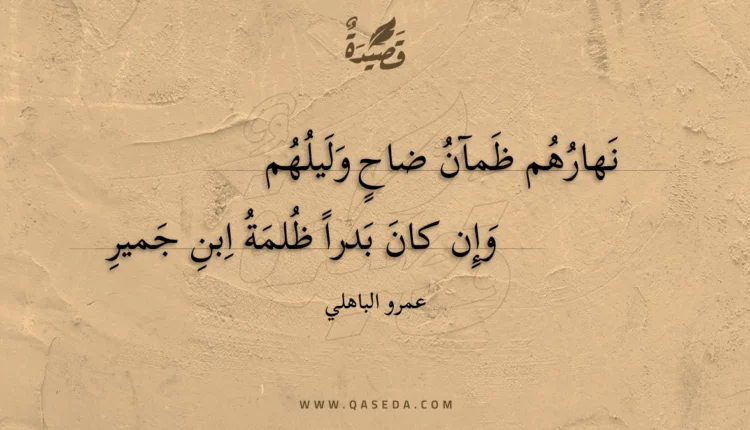 قَصِيدَةٌ
نَهارُهُم ظَمآنُ ضاحٍ وَلَيلُهُم
وَإِن كانَ بَدراً ظُلمَةُ اِبنِ جَميرِ
عمرو الباهلي
WWW.QASEDA.COM